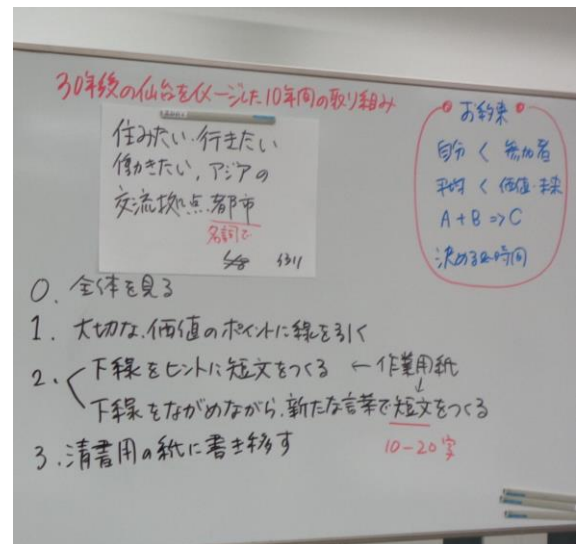 30年後の仙台をイメージした10年間の取り組み
住みたい・行きたい
働きたい、アジアの
交流拠点都市
名詞で
お約束
自分 < 参加者
平均 < 価値・未来
A + B ⇒ C
決める 時間
0. 全体を見る
1. 大切な、価値のポイントに線を引く
2. 下線をヒントに短文をつくる ← 作業用紙
下線をながめながら、新たな言葉で短文をつくる
10-20字
3. 清書用の紙に書き移す